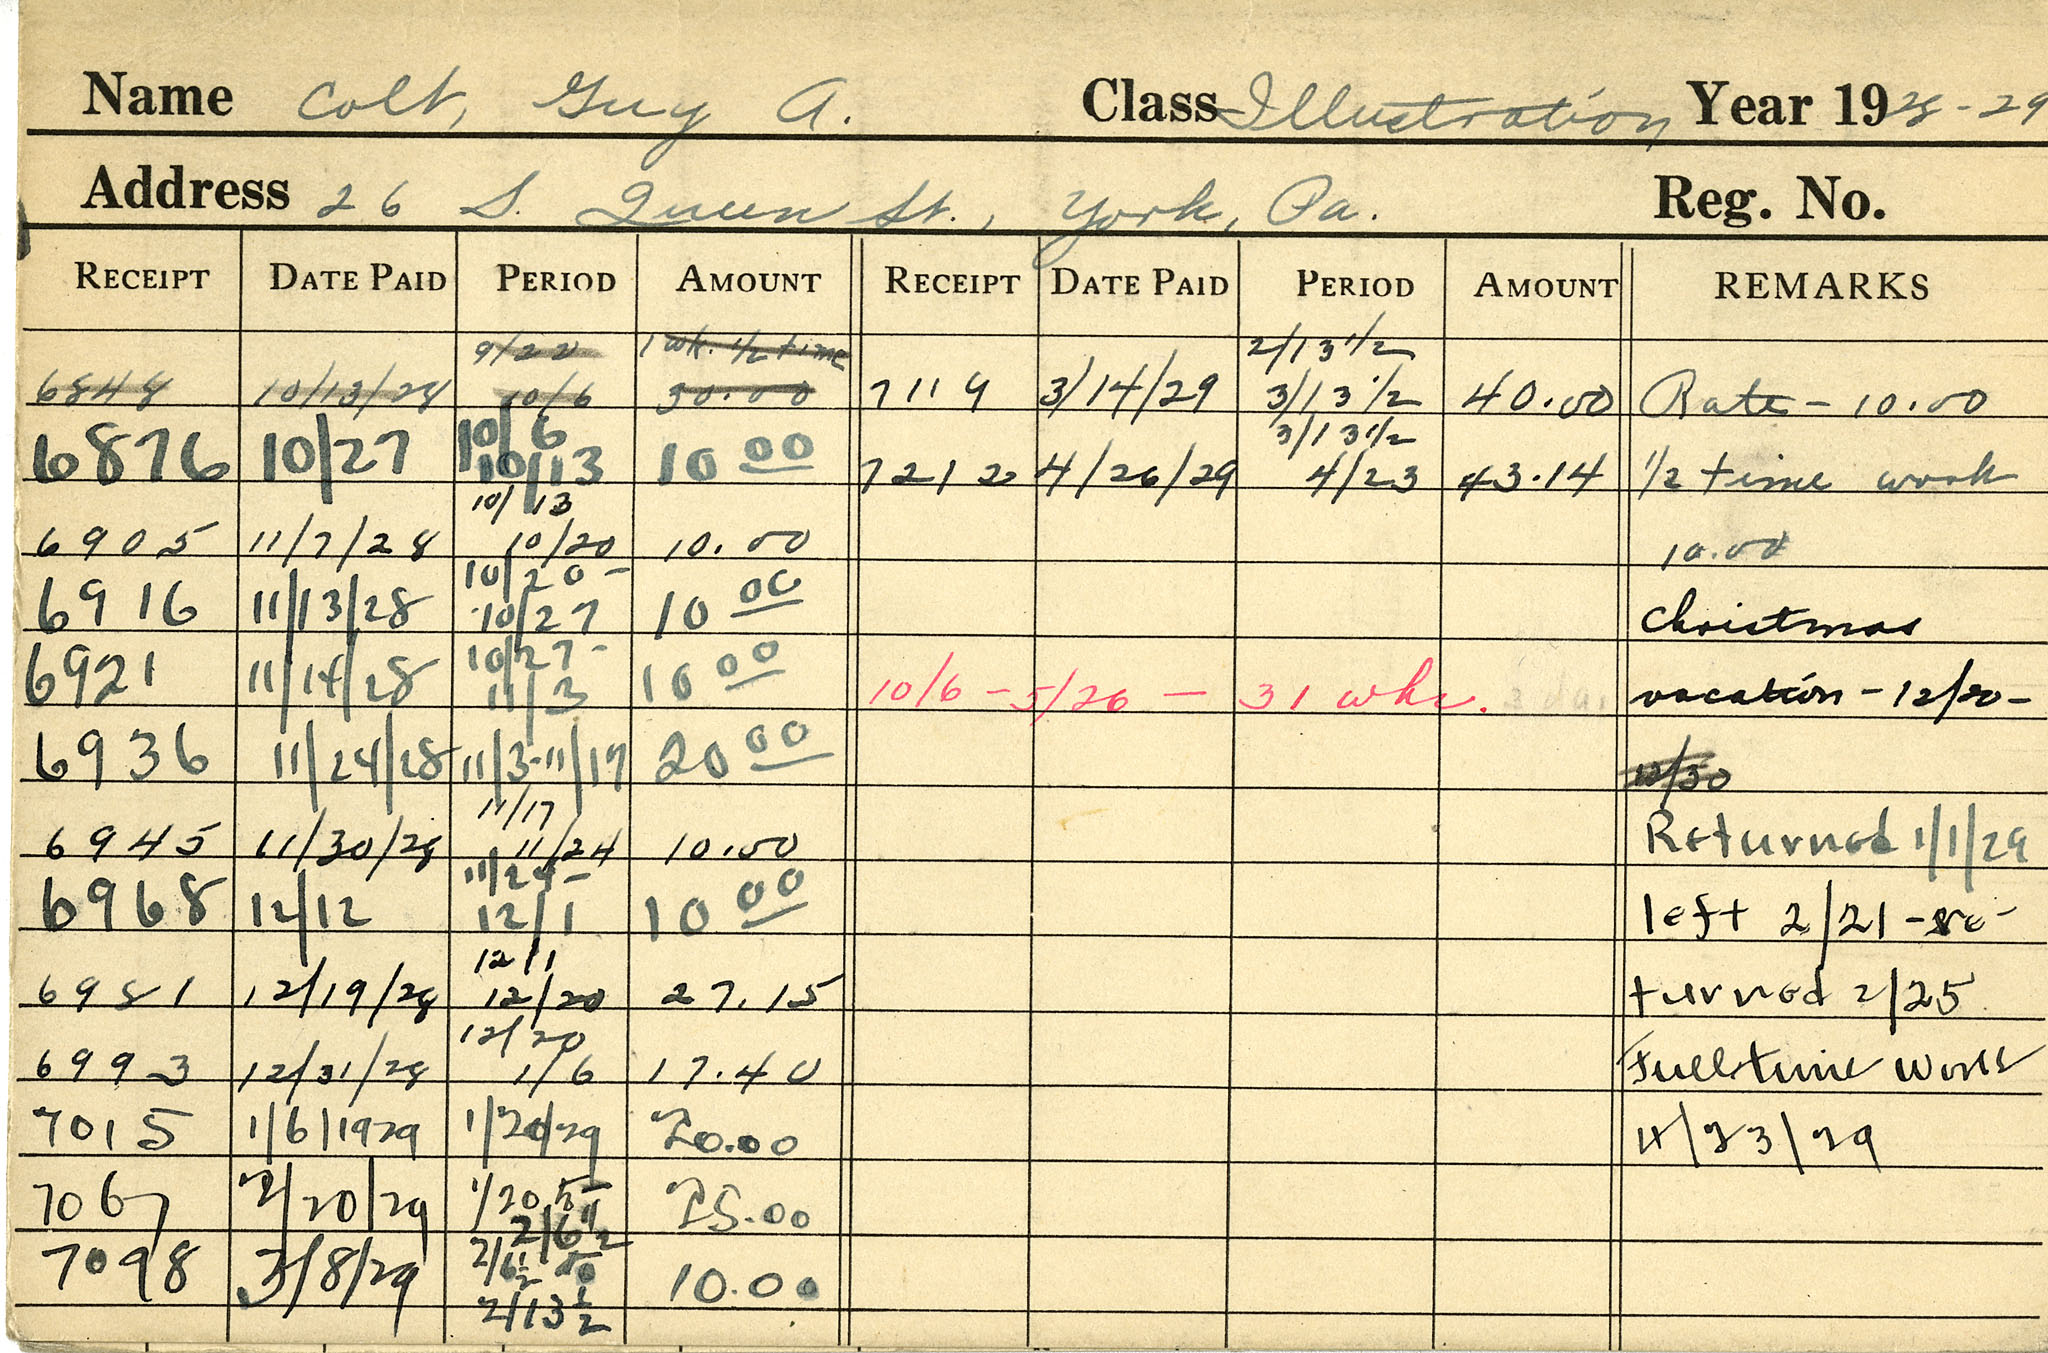 Name Colt, Guy A. Class Illustration Year 1928-29
Address 26 S. Queen St., York, Pa. Reg. No.
RECEIPT DATE PAID PERIOD AMOUNT RECEIPT DATE PAID PERIOD AMOUNT REMARKS
9/22 1 wk. 1/2 time 2/13 1/2
6848 10/13/28 10/6 30.00 7119 3/14/29 3/13 1/2 40.00 Rate - 10.00
10/6 3/13 1/2
6876 10/27 10/13 10 00 7212 4/26/29 4/23 43.14 1/2 time work
10/13
6905 11/7/28 10/20 10.00 10.00
10/20-
6916 11/13/28 10/27 10 00 Christmas
10/27-
6921 11/14/28 11/3 10 00 10/6 - 5/26 - 31 wks. vacation - 12/20-
6936 11/24/28 11/3-11/17 20 00 12/30
11/17
6945 11/30/28 11/24 10.00 Returned 1/1/29
11/24-
6968 12/12 12/1 10 00 left 2/21 - re-
12/1
6981 12/19/28 12/20 27.15 turned 2/25
12/20
6993 12/31/28 1/6 17.40 Full time work
7015 1/6/1929 1/20/29 20.00 4/23/29
1/20
7067 2/20/29 2/6 1/2 25.00
2/6 1/2
7098 3/8/29 2/13 1/2 10.00